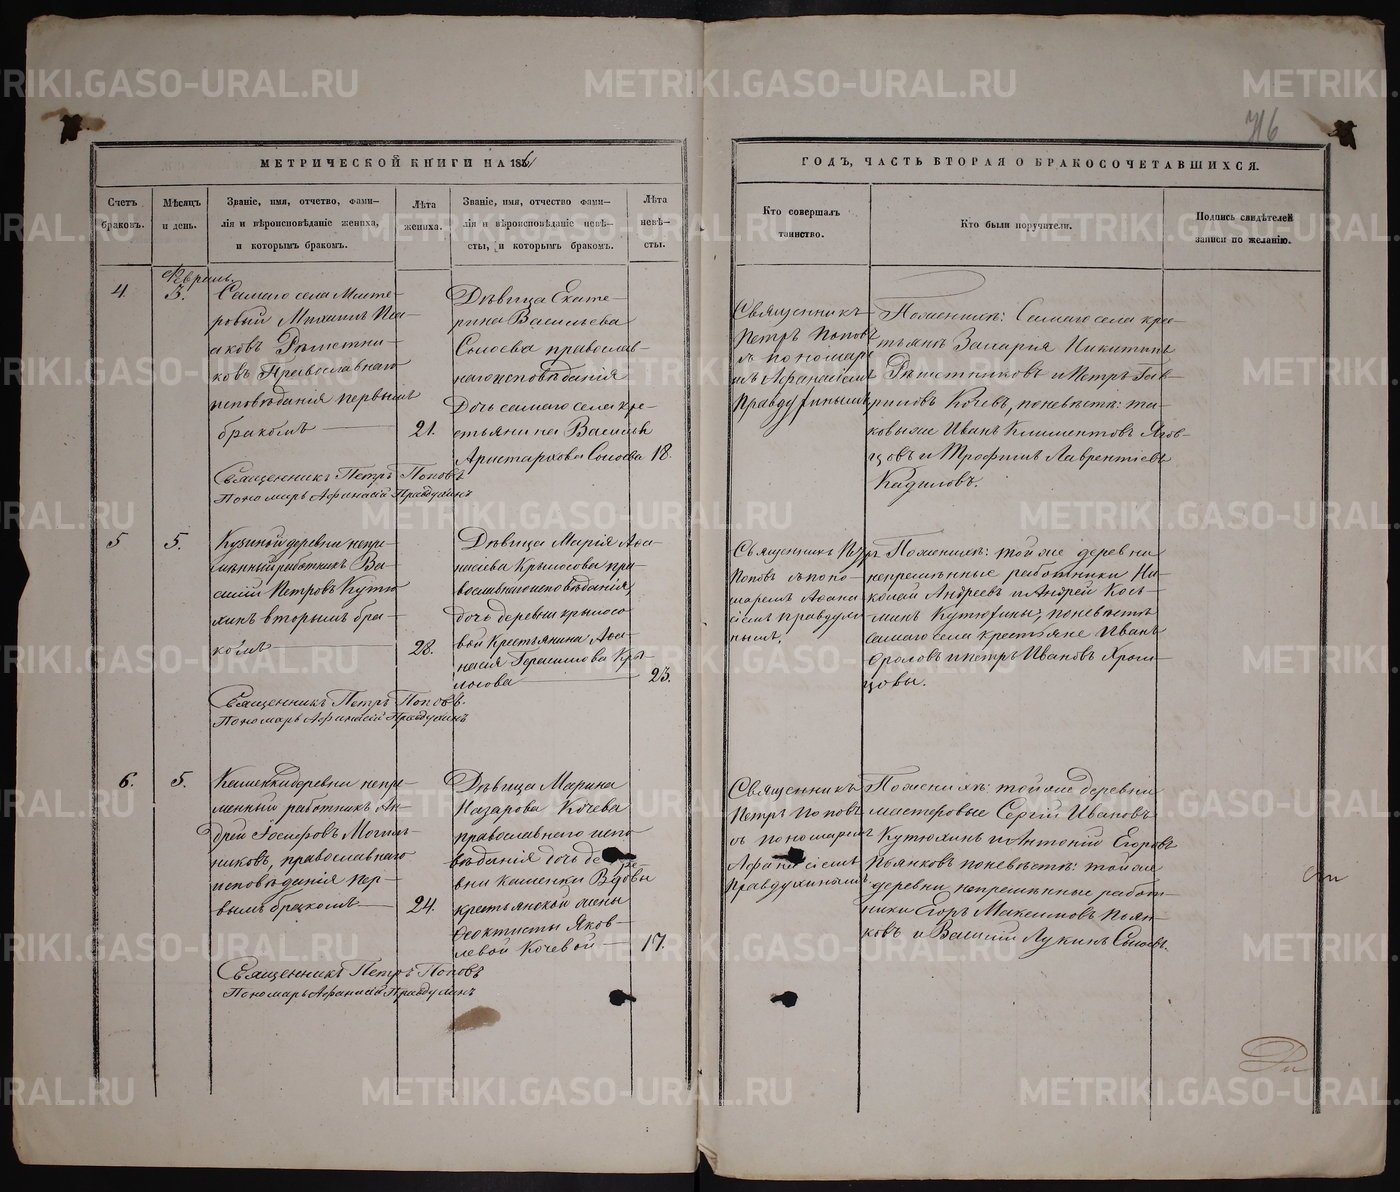 METRIKI.GASO-URAL.RU
716
МЕТРИЧЕСКОЙ КНИГИ НА 185
ГОДЪ, ЧАСТЬ ВТОРАЯ О БРАКОСОЧЕТАВШИХСЯ.
Счетъ браковъ.
Мѣсяцъ и день.
Званіе, имя, отчество, фами-
лія и вѣроисповѣданіе жениха,
и которымъ бракомъ.
Лѣта жениха.
Званіе, имя, отчество фами-
лія и вѣроисповѣданіе невѣ-
сты, и которымъ бракомъ.
Лѣта невѣ-
сты.
Кто совершалъ
таинство.
Кто были поручители.
Подпись свидѣтелей
записи по желанію.
Февраль
4
3.
Самаго села Масте-
ровый Михаилъ Иса-
аковъ Рѣшетни-
ковъ Православнаго
исповѣданія первымъ
бракомъ
21.
Дѣвица Екате-
рина Васильева
православ-
наго исповѣданія
Дочь самаго села кре-
стьянина Василья
Аристархова
18.
Священникъ
Петръ Поповъ
съ пономаре
мъ Афанасіемъ
Правдухинымъ
Поженихѣ: Самаго села кре-
стьяне Захарія Никитинъ
Рѣшетниковъ и Петръ Гав-
риловъ Кочевъ, поневѣстѣ: та-
ковыже Иванъ Климентовъ
и Трофимъ Лаврентіевъ
Кадиловъ.
Священникъ Петръ Поповъ
Пономарь Афанасій Правдухинъ
5
5.
Кузиной деревни непре-
мѣнный работникъ Ва-
силій Петровъ Кутю-
хинъ вторымъ бра-
комъ
28.
Дѣвица Марія Аѳа-
насьева Крылосова пра-
вославнаго исповѣданія,
дочь деревни Крылосо-
вой Крестьянина Аѳа-
насія Герасимова Кры-
лосова
23.
Священникъ Петръ
Поповъ съ поно-
маремъ Аѳана
сіемъ Правдухи
нымъ,
Поженихѣ: тойже деревни
непремѣнные работники Ни-
колай Андреевъ и Андрей Козь-
минъ Кутюхины, поневѣстѣ
Самаго села крестьяне Иванъ
Фроловъ и Петръ Ивановъ Хром-
цовы.
Священникъ Петръ Поповъ.
Пономарь Афанасій Правдухинъ
6.
5.
Каменки деревни непре-
менный работникъ Ан-
дрей Іосифовъ Могиль-
никовъ, православнаго
исповѣданія пер-
вымъ бракомъ
24.
Дѣвица Марина
Назарова Кочева
православнаго испо
вѣданія дочь дере-
вни Каменки Вдовы
крестьянской жены
Ѳеоктисты Яков-
левой Кочевой
17.
Священникъ
Петръ Поповъ
съ пономаремъ
Афанасіемъ
Правдухинымъ
Поженихѣ: тойже деревни
мастеровые Сергій Ивановъ
Кутюхинъ и Антоній Егоровъ
Пьянковъ поневѣстѣ: тойже
деревни непремѣнные работ-
ники Егоръ Максимовъ Пьян-
ковъ и Василій Лукинъ
Священникъ Петръ Поповъ
Пономарь Афанасій Правдухинъ